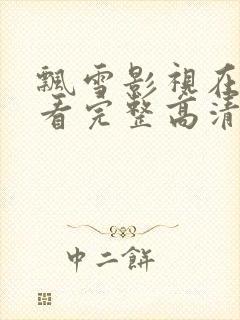 飄雪影視在
看完整高清
中二餅